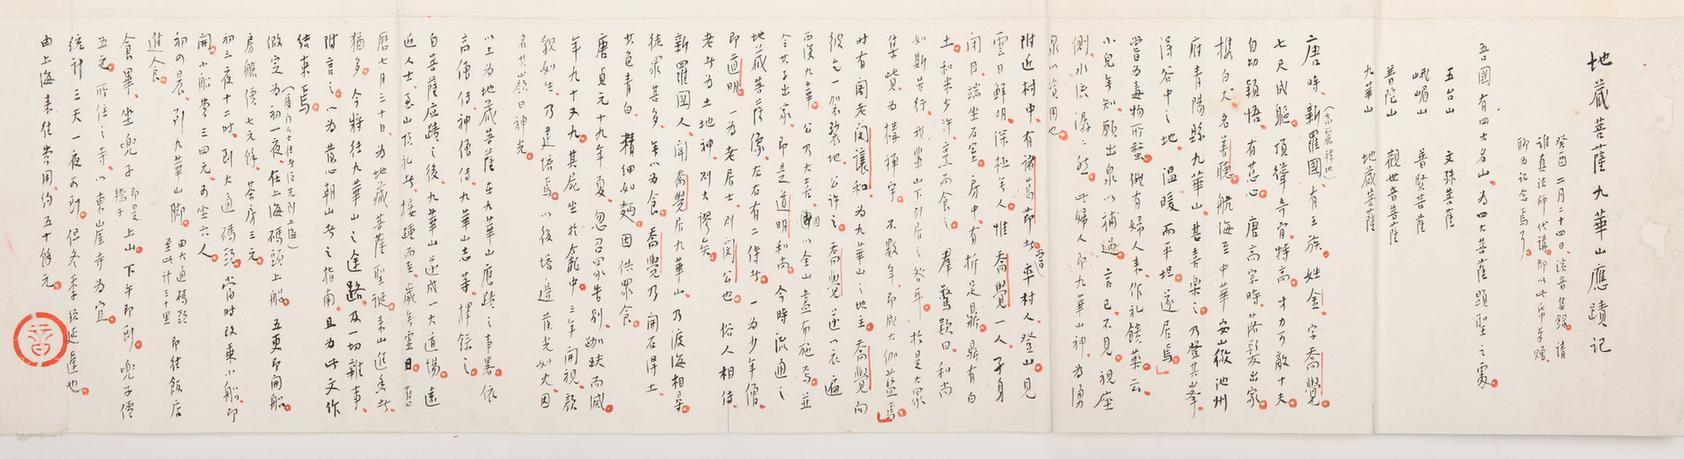 地藏菩薩九華山應蹟記
癸酉二月二十四日、
誰真法師代講、即以此
聊為記念焉
吾國有四大名山、為四大菩薩顯聖之處。
五台山 文殊菩薩
峨嵋山 普賢菩薩
普陀山 觀世音菩薩
九華山 地藏菩薩
唐時、新羅國有王族、姓金、字喬覺。
七尺成軀、頂聳奇骨特高、才力可敵十夫
自幼穎悟、有慈心。唐高宗時、落髮出家
攜白犬、名善聽、航海至中華安徽池州
府青陽縣九華山、甚喜樂之、乃登其峯、
得谷中之地、溫暖而平坦、遂居焉。
嘗為毒物所螫、俄有婦人來作礼饋藥云、
小兒無知、願出泉以補過。言已不見。視座
側、水流潺潺然。此婦人即九華山神、為湧
泉以資用也。
附近村中、有諸葛節者、率村人登山、見
雲日鮮明、深極無人、惟喬覺一人孑身
閉目、端坐石室、房中有折足鼎、鼎有白
土、和米少許、烹而食之。羣驚歎曰、和尚
如斯苦行、我輩山下列居之咎耳。於是大眾
集資、為構禪宇、不數年、即成大伽藍焉。
時有閣老閔讓和、為九華山之地主、喬覺向
彼乞一袈裟地、公許之、喬覺遂以衣遍
覆九華。公乃大喜、以全山盡布施焉、並
令其子出家、即是道明和尚。今時流通之
地藏菩薩像、左右有二侍者、一為少年僧
即道明、一為老居士則閔公也。俗人相傳、
老者為土地神、則大謬矣。
新羅國人、聞喬覺居九華山、乃渡海相尋、
徒眾甚多、無以為食、喬覺乃開石得土、
其色青白、精細如麵、因供眾食。
唐貞元十九年夏、忽召眾告別、跏趺而滅。
年九十又九。其屍坐於龕中、三年開視、顏
貌如生、乃建塔焉。以後塔邊發光如火、因
名其山嶺曰神光。
以上為地藏菩薩在九華山應蹟之事畧、依
高僧傳神僧傳、九華山志等擇錄之。
自菩薩應蹟之後、九華山遂成一大道場、遠
近人士、至山頂礼者、接踵而至、歲無虛日。舊
曆七月三十日、為地藏菩薩聖誕、來山進香者
猶多。今將往九華山之途路、及一切雜事、
附言之、以為發心朝山者之指南、且為此文作
結束焉。
做定為初一夜、在上海碼頭上船、五更即開船。
房艙價七元餘、茶房三元。
初三夜十二時到大通碼頭、當時改乘小船、即
開、小船費三四元、可坐六人。
初四晨、到九華山腳、由大通碼頭至此計三里即往飯店
進食。
食畢、坐兜子、即是轎子上山。下午即到。兜子價
五元。所住之寺、以東崖寺為宜。
統計三天一夜可到。但冬季較延遲也。
由上海來往費用、約五十餘元。